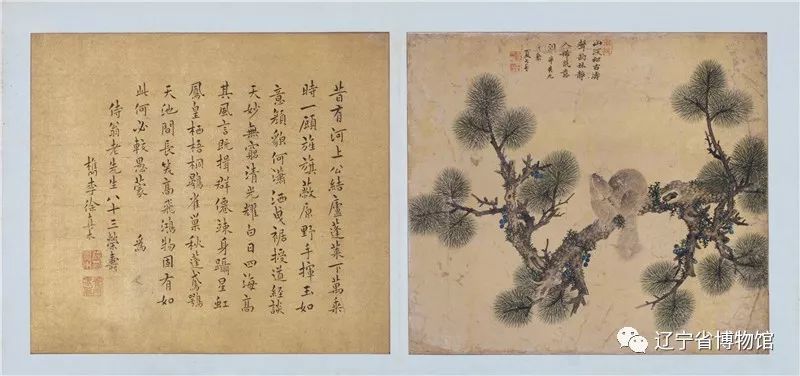 山深松古濤
聲韵林靜
人稀
昔有河上公結廬蓬萊下萬乘
時一顧旌旗蔽原野手揮玉如
意頽貌何瀟洒曳裾授道經談
天妙無窮清光耀白日四海高
其風言既揖群僊竦身躡星虹
鳳皇栖梧桐鷃雀巢秋蓬鳶鶚
天池間長笑高飛鴻物固有如
此何必較愚蒙 為
侍翁老先生八十三榮壽
檇李徐真木
辽宁省博物馆